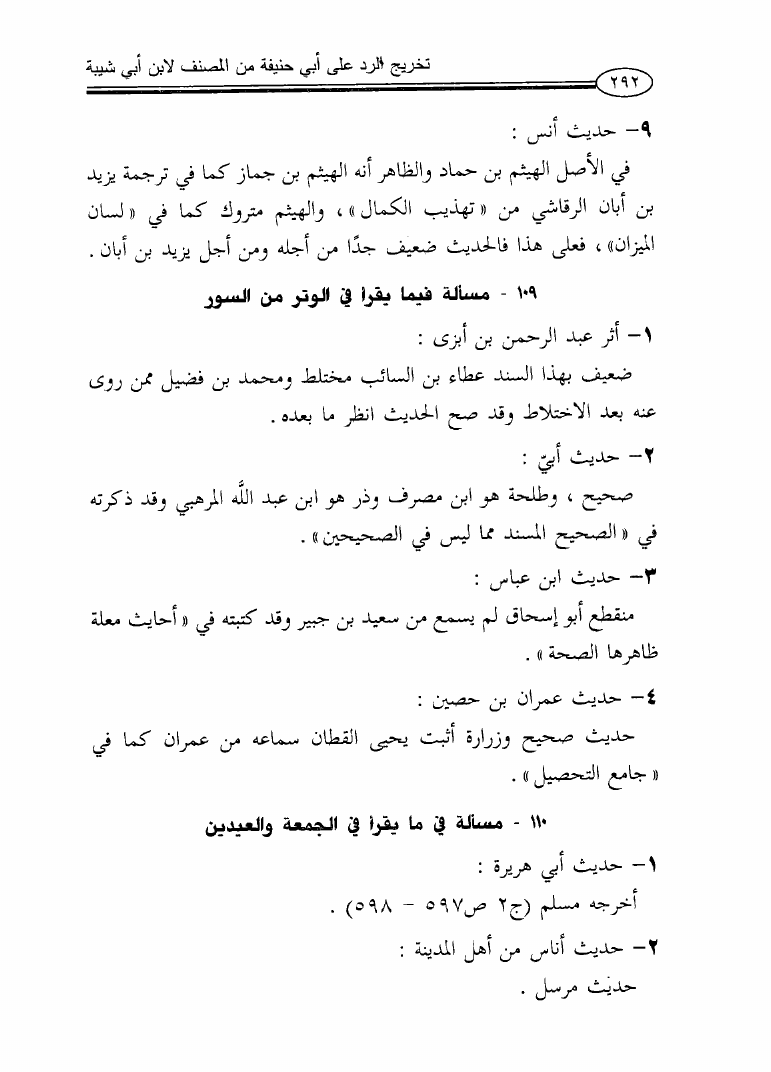 تخريج الرد على أبي حنيفة من المصنف لابن أبي شيبة
٢٩٢
٩- حديث أنس :
في الأصل الهيثم بن حماد والظاهر أنه الهيثم بن جماز كما في ترجمة يزيد
بن أبان الرقاشي من «تهذيب الكمال»، والهيثم متروك كما في «لسان
الميزان»، فعلى هذا فالحديث ضعيف جدًا من أجله ومن أجل يزيد بن أبان .
١٠٩ - مسألة فيما يقرأ في الوتر من السور
١- أثر عبد الرحمن بن أبزى :
ضعيف بهذا السند عطاء بن السائب مختلط ومحمد بن فضيل ممن روى
عنه بعد الاختلاط وقد صح الحديث انظر ما بعده .
٢- حديث أبيّ :
صحيح ، وطلحة هو ابن مصرف وذر هو ابن عبد اللَّه المرهبي وقد ذكرته
في «الصحيح المسند مما ليس في الصحيحين» .
٣- حديث ابن عباس :
منقطع أبو إسحاق لم يسمع من سعيد بن جبير وقد كتبته في «أحايث معلة
ظاهرها الصحة» .
٤- حديث عمران بن حصين :
حديث صحيح وزرارة أثبت يحيى القطان سماعه من عمران كما في
«جامع التحصيل» .
١١٠ - مسألة في ما يقرأ في الجمعة والعيدين
١- حديث أبي هريرة :
أخرجه مسلم (ج٢ ص٥٩٧ - ٥٩٨) .
٢- حديث أناس من أهل المدينة :
حديث مرسل .